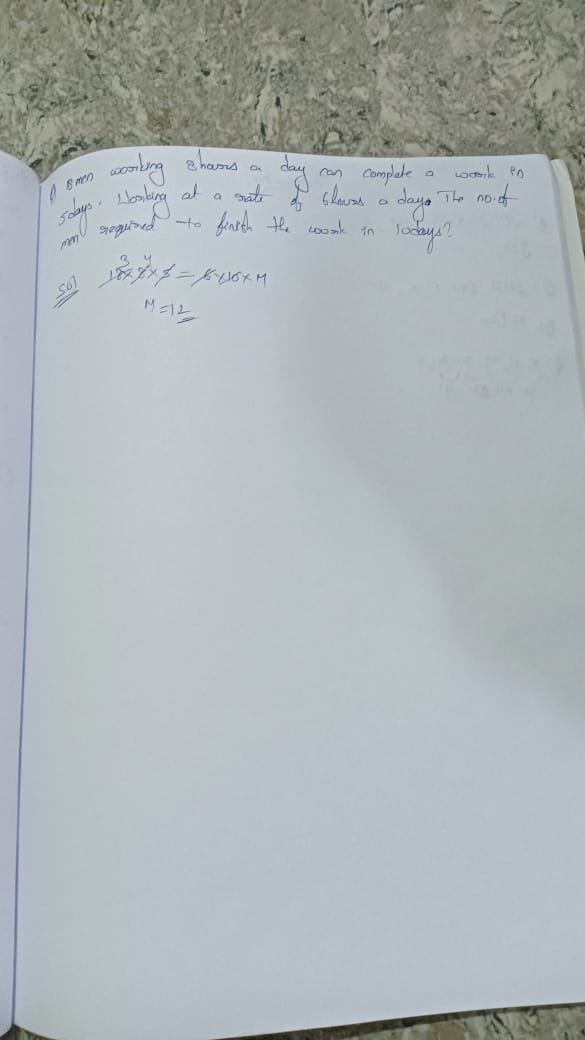 8 men working 8 hours a day can complete a work in
5 days. Working at a rate of 6 hours a day. The no. of
men required to finish the work in 10 days?
Sol 18 × 8 × 5 = 6 × 10 × M
3 4
M = 12